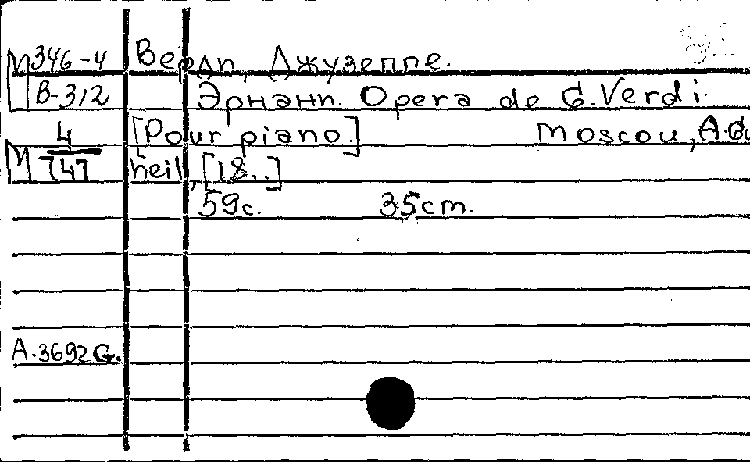 М 346-4 Верди, Джузеппе.
В-312 Эрнани. Opera de G. Verdi.
4 [Pour piano.] Moscou, A. Gu
М 747 heil, [18..]
59с. 35cm.
А.3692G.